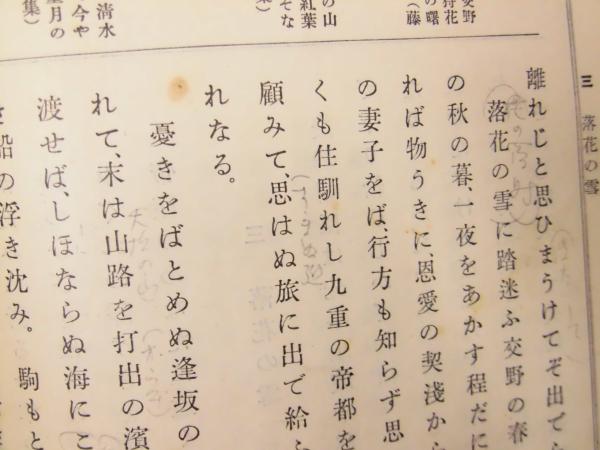 三 落花の雪
交野
狩花
の曙
(藤
の山
紅葉
そな
清水
今や
望月の
集)
離れじと思ひまうけてぞ出でら
落花の雪に踏迷ふ交野の春
の秋の暮、一夜をあかす程だに
れば物うきに、恩愛の契淺から
の妻子をば、行方も知らず思
くも住馴れし九重の帝都を
顧みて、思はぬ旅に出で給
れなる。
憂きをばとめぬ逢坂の
れて、末は山路を打出の濱
渡せば、しほならぬ海にこ
船の浮き沈み。駒もと